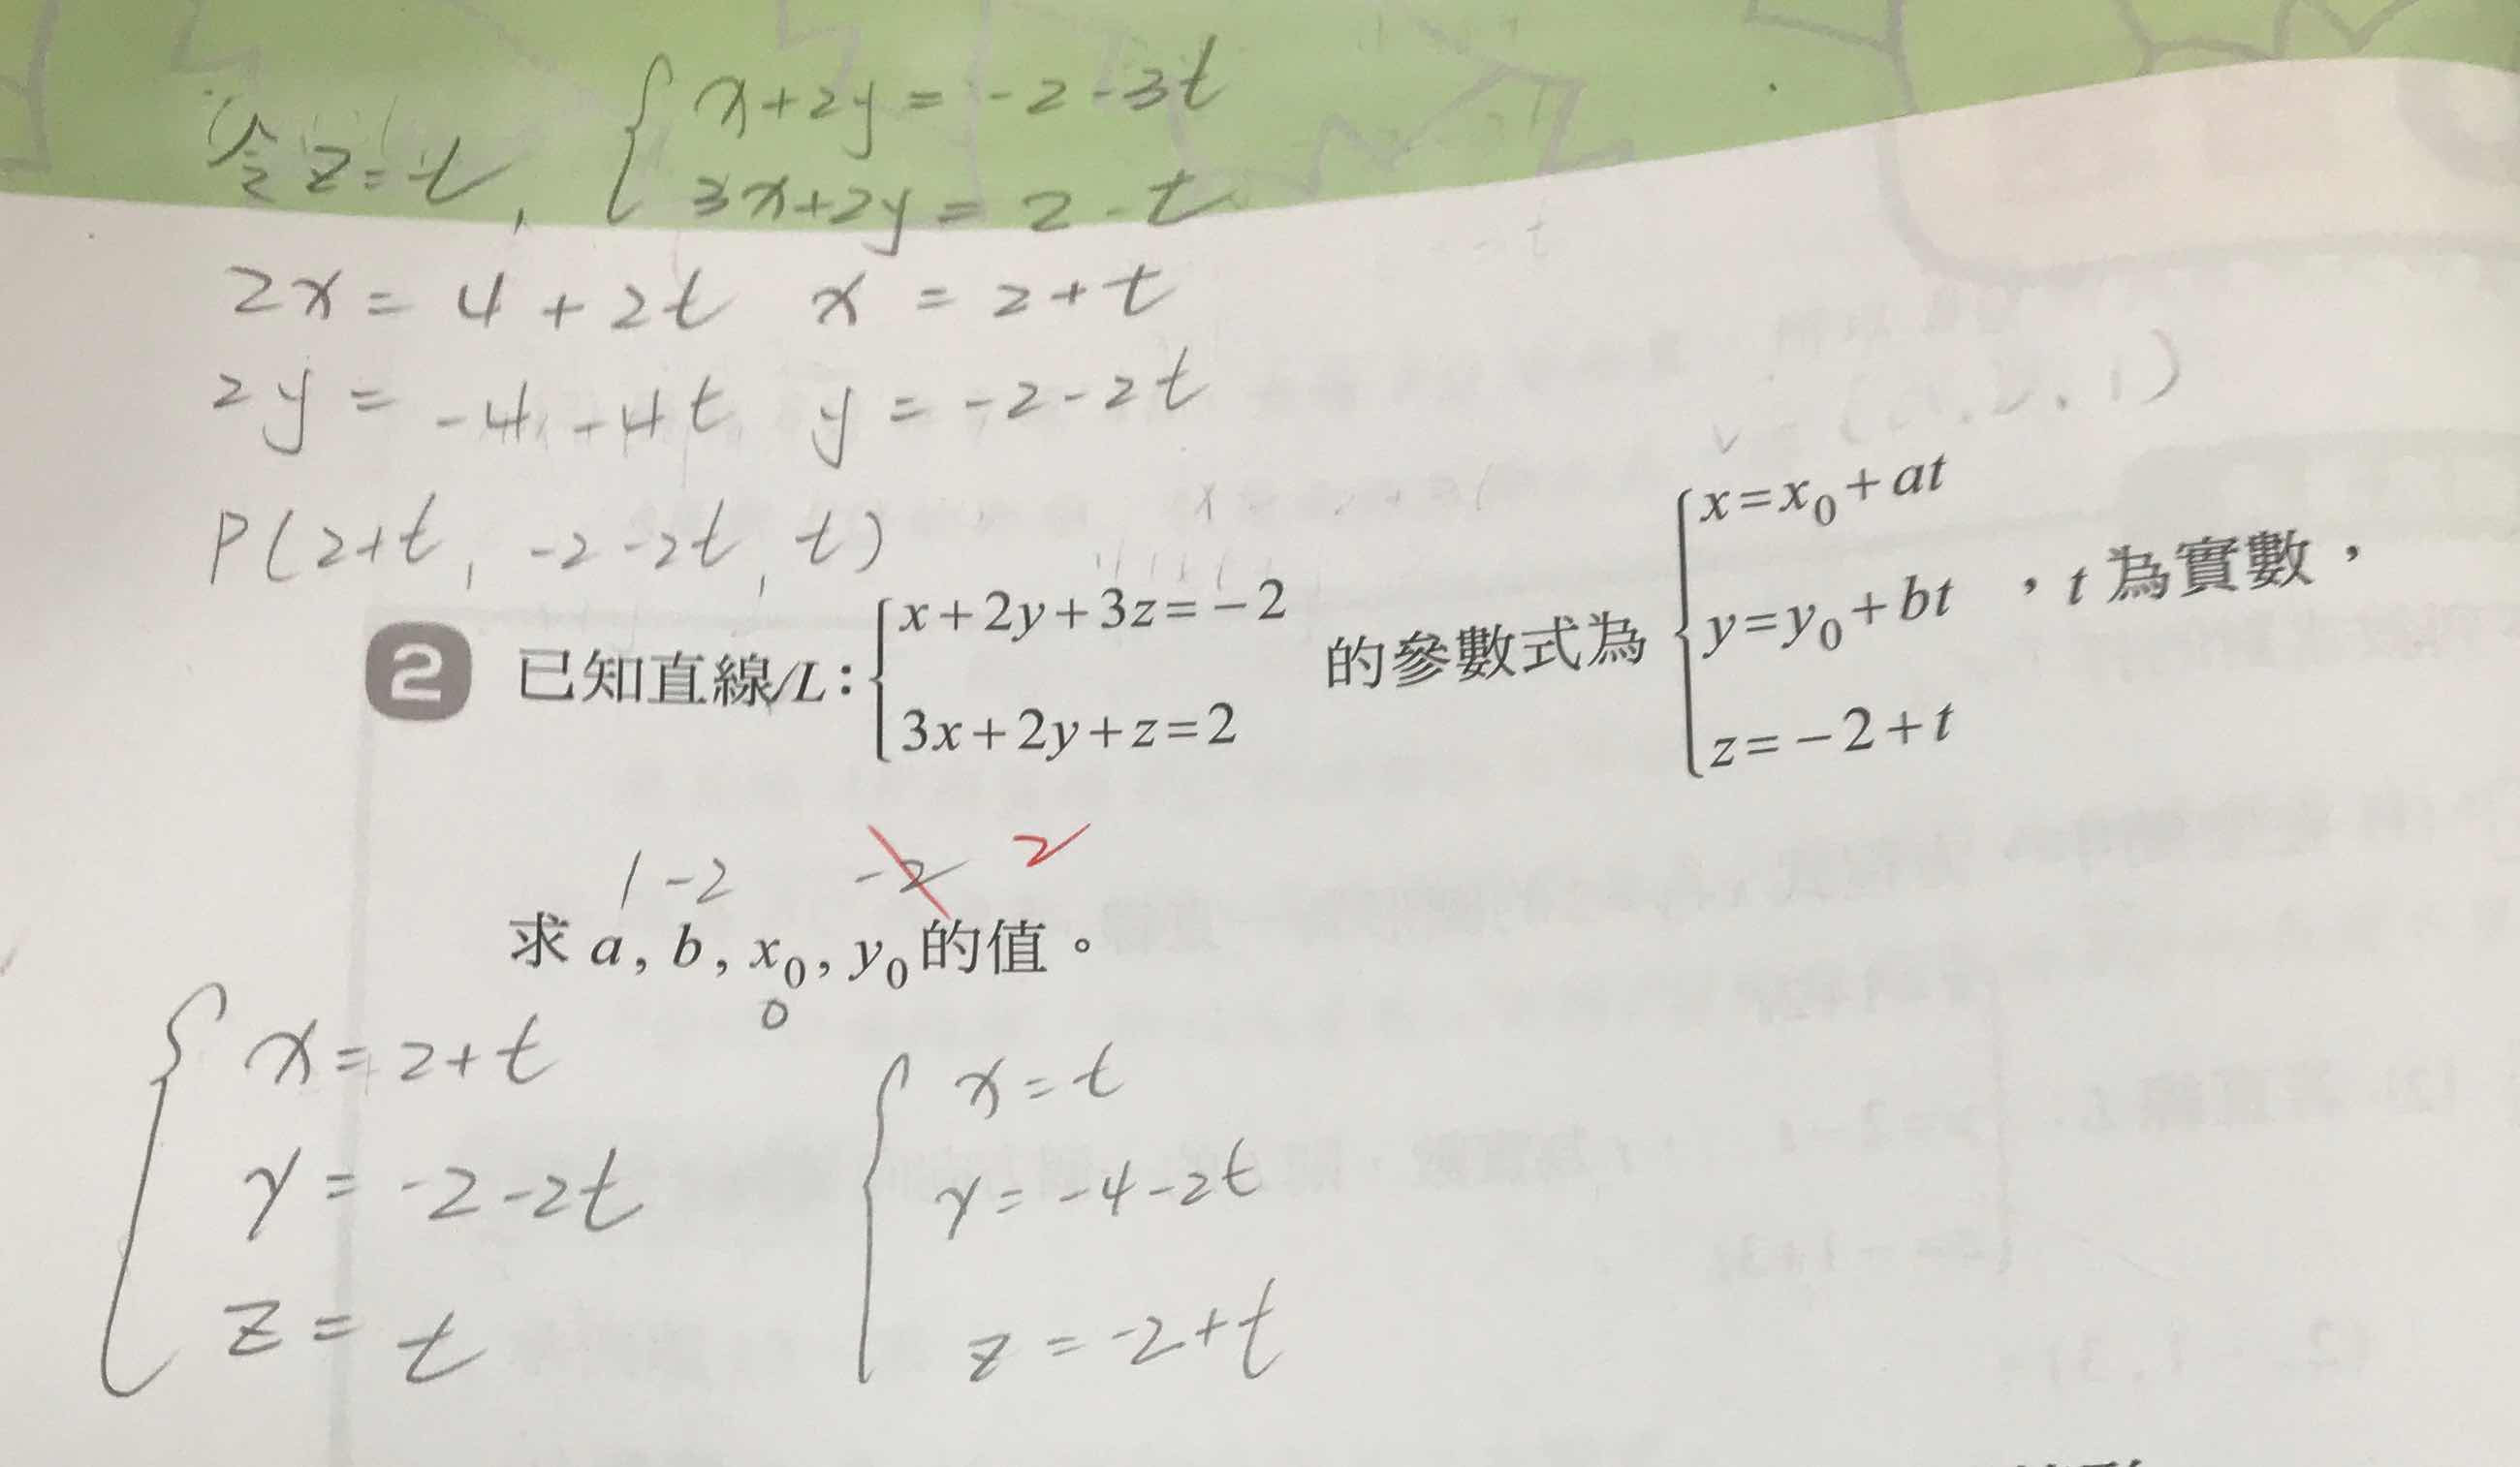 令 z=t, { x+2y = -2-3t
3x+2y = 2-t
2x = 4+2t x = 2+t
2y = -4-4t y = -2-2t
P(2+t, -2-2t, t)
2 已知直線L: { x+2y+3z=-2
3x+2y+z=2
的參數式為 { x=x₀+at
y=y₀+bt
z=-2+t
,t為實數,
1 -2 -2 2
求 a, b, x₀, y₀的值。
0
{ x = 2+t
y = -2-2t
z = t
{ x = t
y = -4-2t
z = -2+t